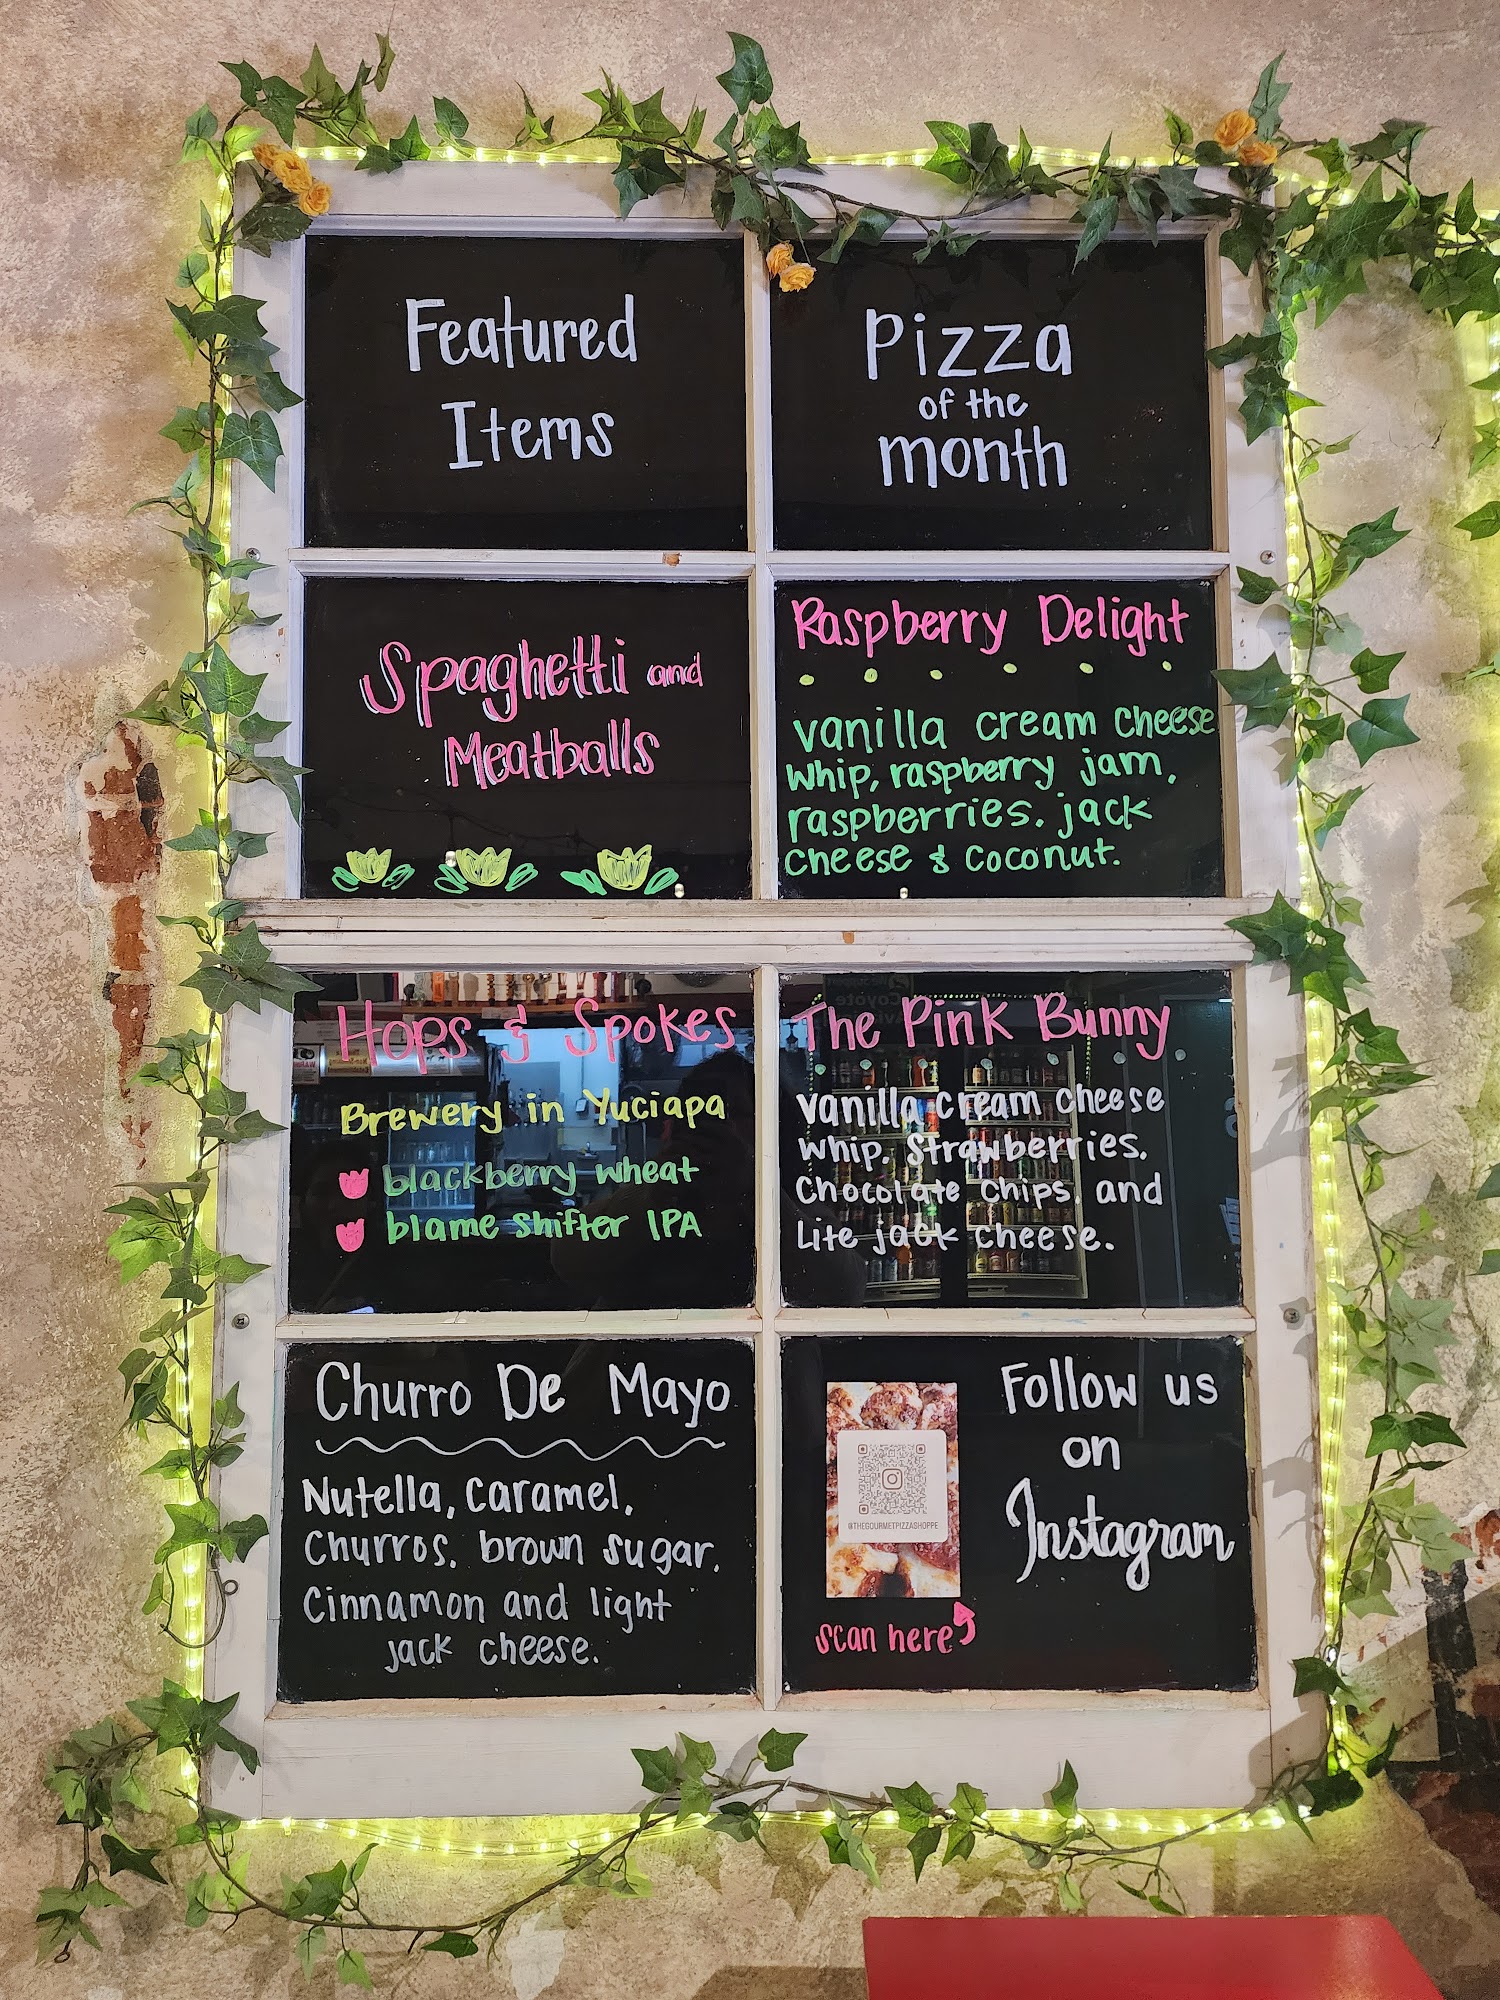 Featured
Items
Pizza
of the
month
Spaghetti and
Meatballs
Raspberry Delight
vanilla cream cheese
whip, raspberry jam,
raspberries. jack
cheese & coconut.
Hops & Spokes
Brewery in Yuciapa
blackberry wheat
blame shifter IPA
The Pink Bunny
vanilla cream cheese
whip. Strawberries.
Chocolate chips, and
Lite jack cheese.
Churro De Mayo
Nutella, caramel,
Churros. brown sugar.
Cinnamon and light
jack cheese.
Follow us
on
Instagram
@THEGOURMETPIZZASHOPPE
scan here